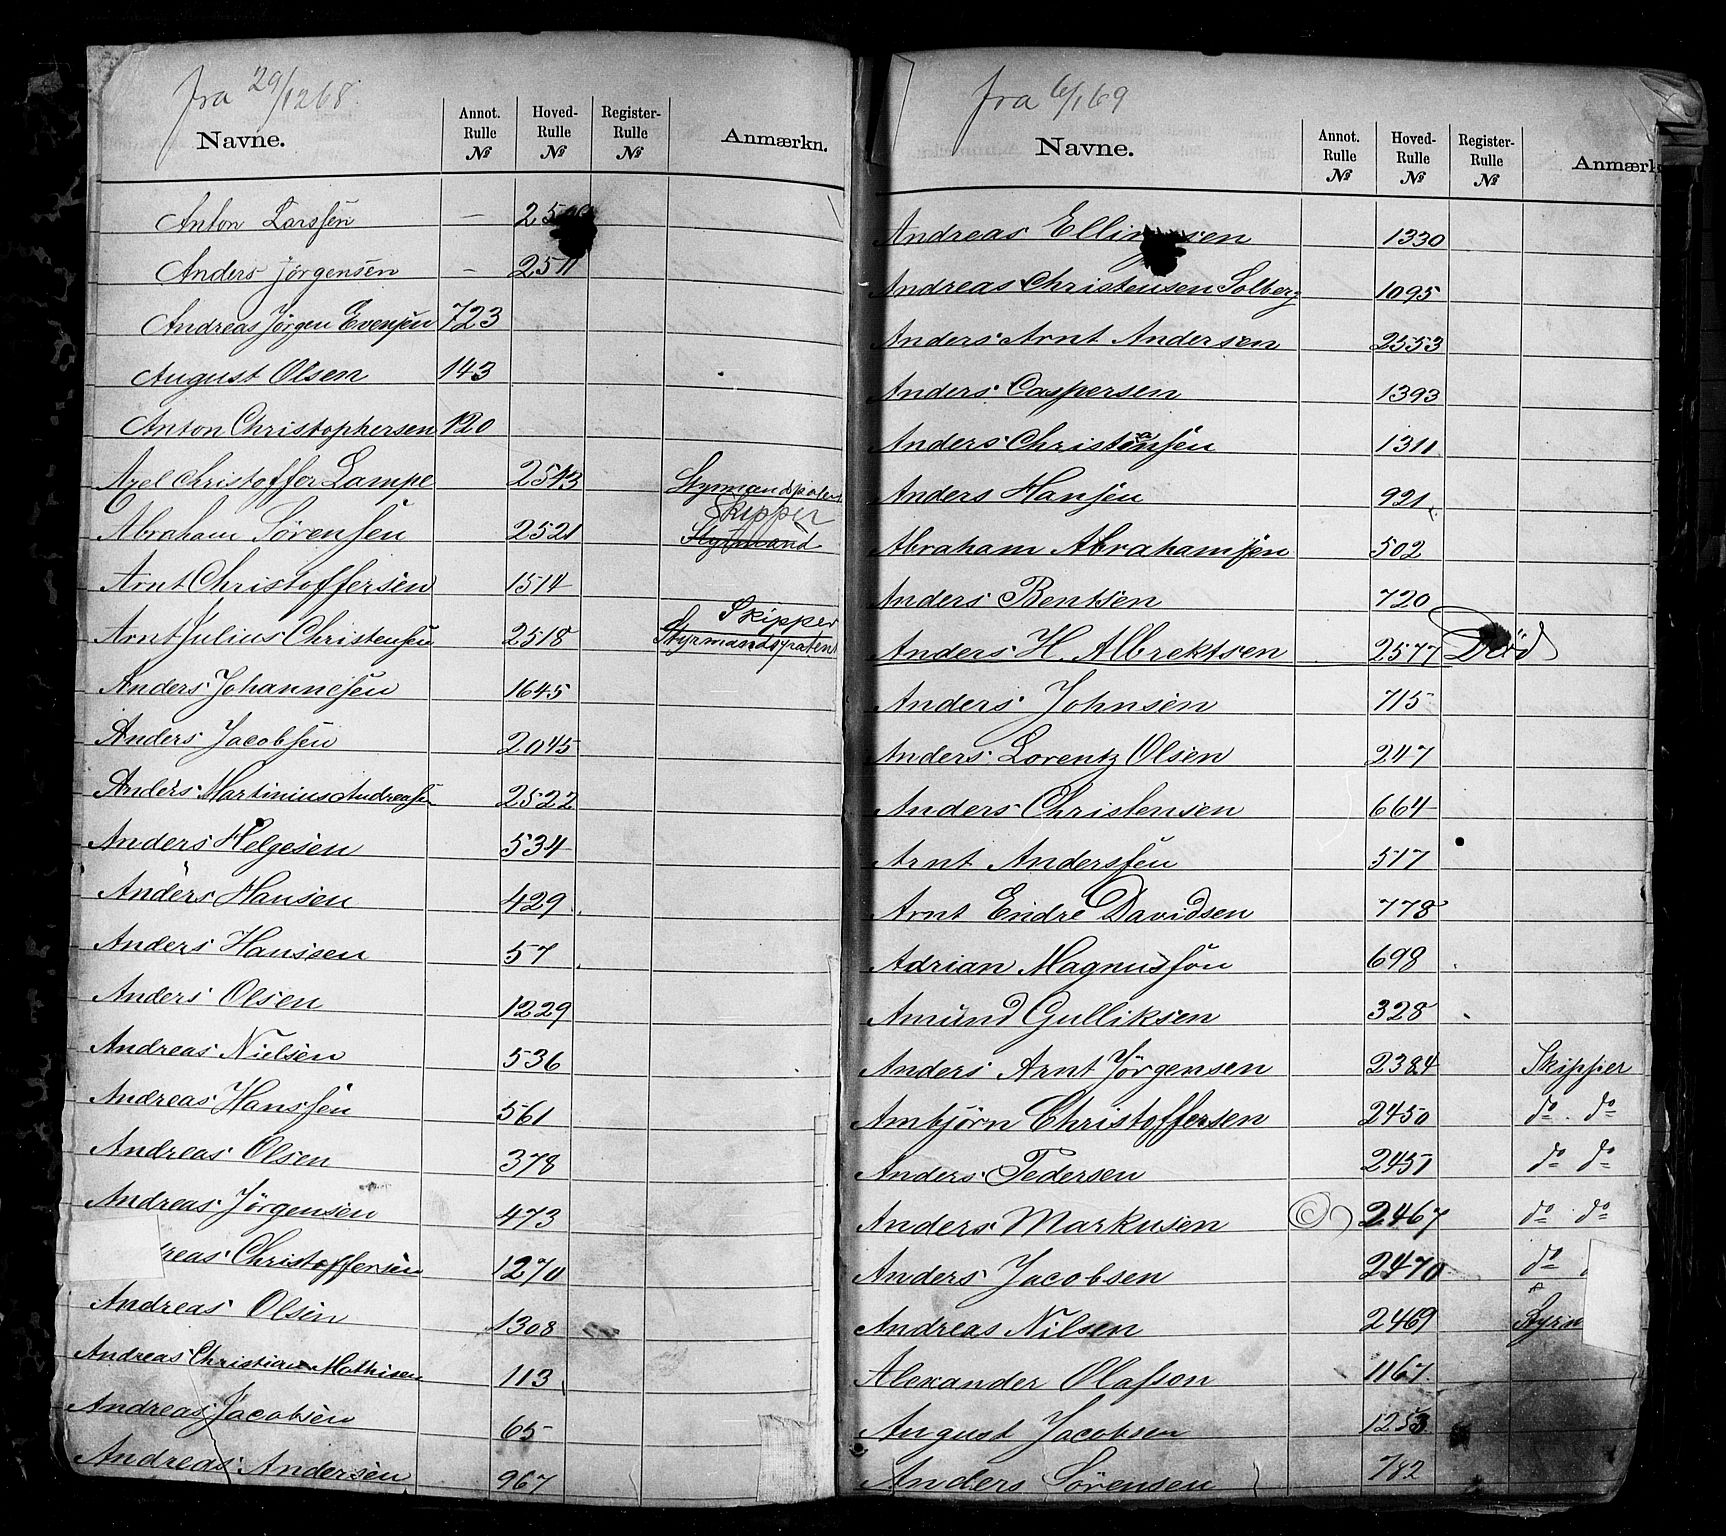 fra 29/12 68.
Navne. Annot. Rulle № Hoved- Rulle № Register- Rulle № Anmærkn.
Anton Larssen -
Anders Jørgensen - 2511
Andreas Jørgen Evensen 723
August Olsen 143
Anton Christophersen 120
Axel Christoffer Lampe 2543
Skipper
Abraham Sørensen 2521 Styrmand
Arnt Christoffersen 1514
Skipper
Arnt Julius Christensen 2518
Anders Johannesen 1645
Anders Jacobsen 2045
Anders Martinius Andreasen 2522
Anders Helgesen 534
Anders Hansen 429
Anders Hanssen 57
Anders Olsen 1229
Andreas Nielsen 536
Andreas Hanssen 561
Andreas Olsen 378
Andreas Jørgensen 473
reas Christoffersen 1270
Andreas Olsen 1308
Andreas Christian Mathisen 113
Andreas Jacobsen 65
Andreas Andersen 967
fra 6/1 69
Navne. Annot. Rulle № Hoved- Rulle № Register- Rulle № Anmærk
Andreas Ellingsen 1330
Andreas Christensen Solberg 1095
Anders Arnt Andersen 2553
Anders Caspersen 1393
Anders Christensen 1311
Anders Hansen 921
Abraham Abrahamsen 502
Anders Bentsen 720
Anders H. Albrektsen 2577 Död
Anders Johnsen 715
Anders Lorentz Olsen 247
Anders Christensen 664
Arnt Anderssen 517
Arnt Endre Davidsen 778
Adrian Magnussön 698
Amund Gulliksen 328
Anders Arnt Jørgensen 2384 Skipper
Ambjörn Christoffersen 2450 do do
Anders Pedersen 2451 do do
Anders Markusen 2467 do do
Anders Jacobsen 2470 do
Andreas Nilsen 2469 Styrm
Alexander Olafson 1167
August Jacobsen 1253
Anders Sörensen 782